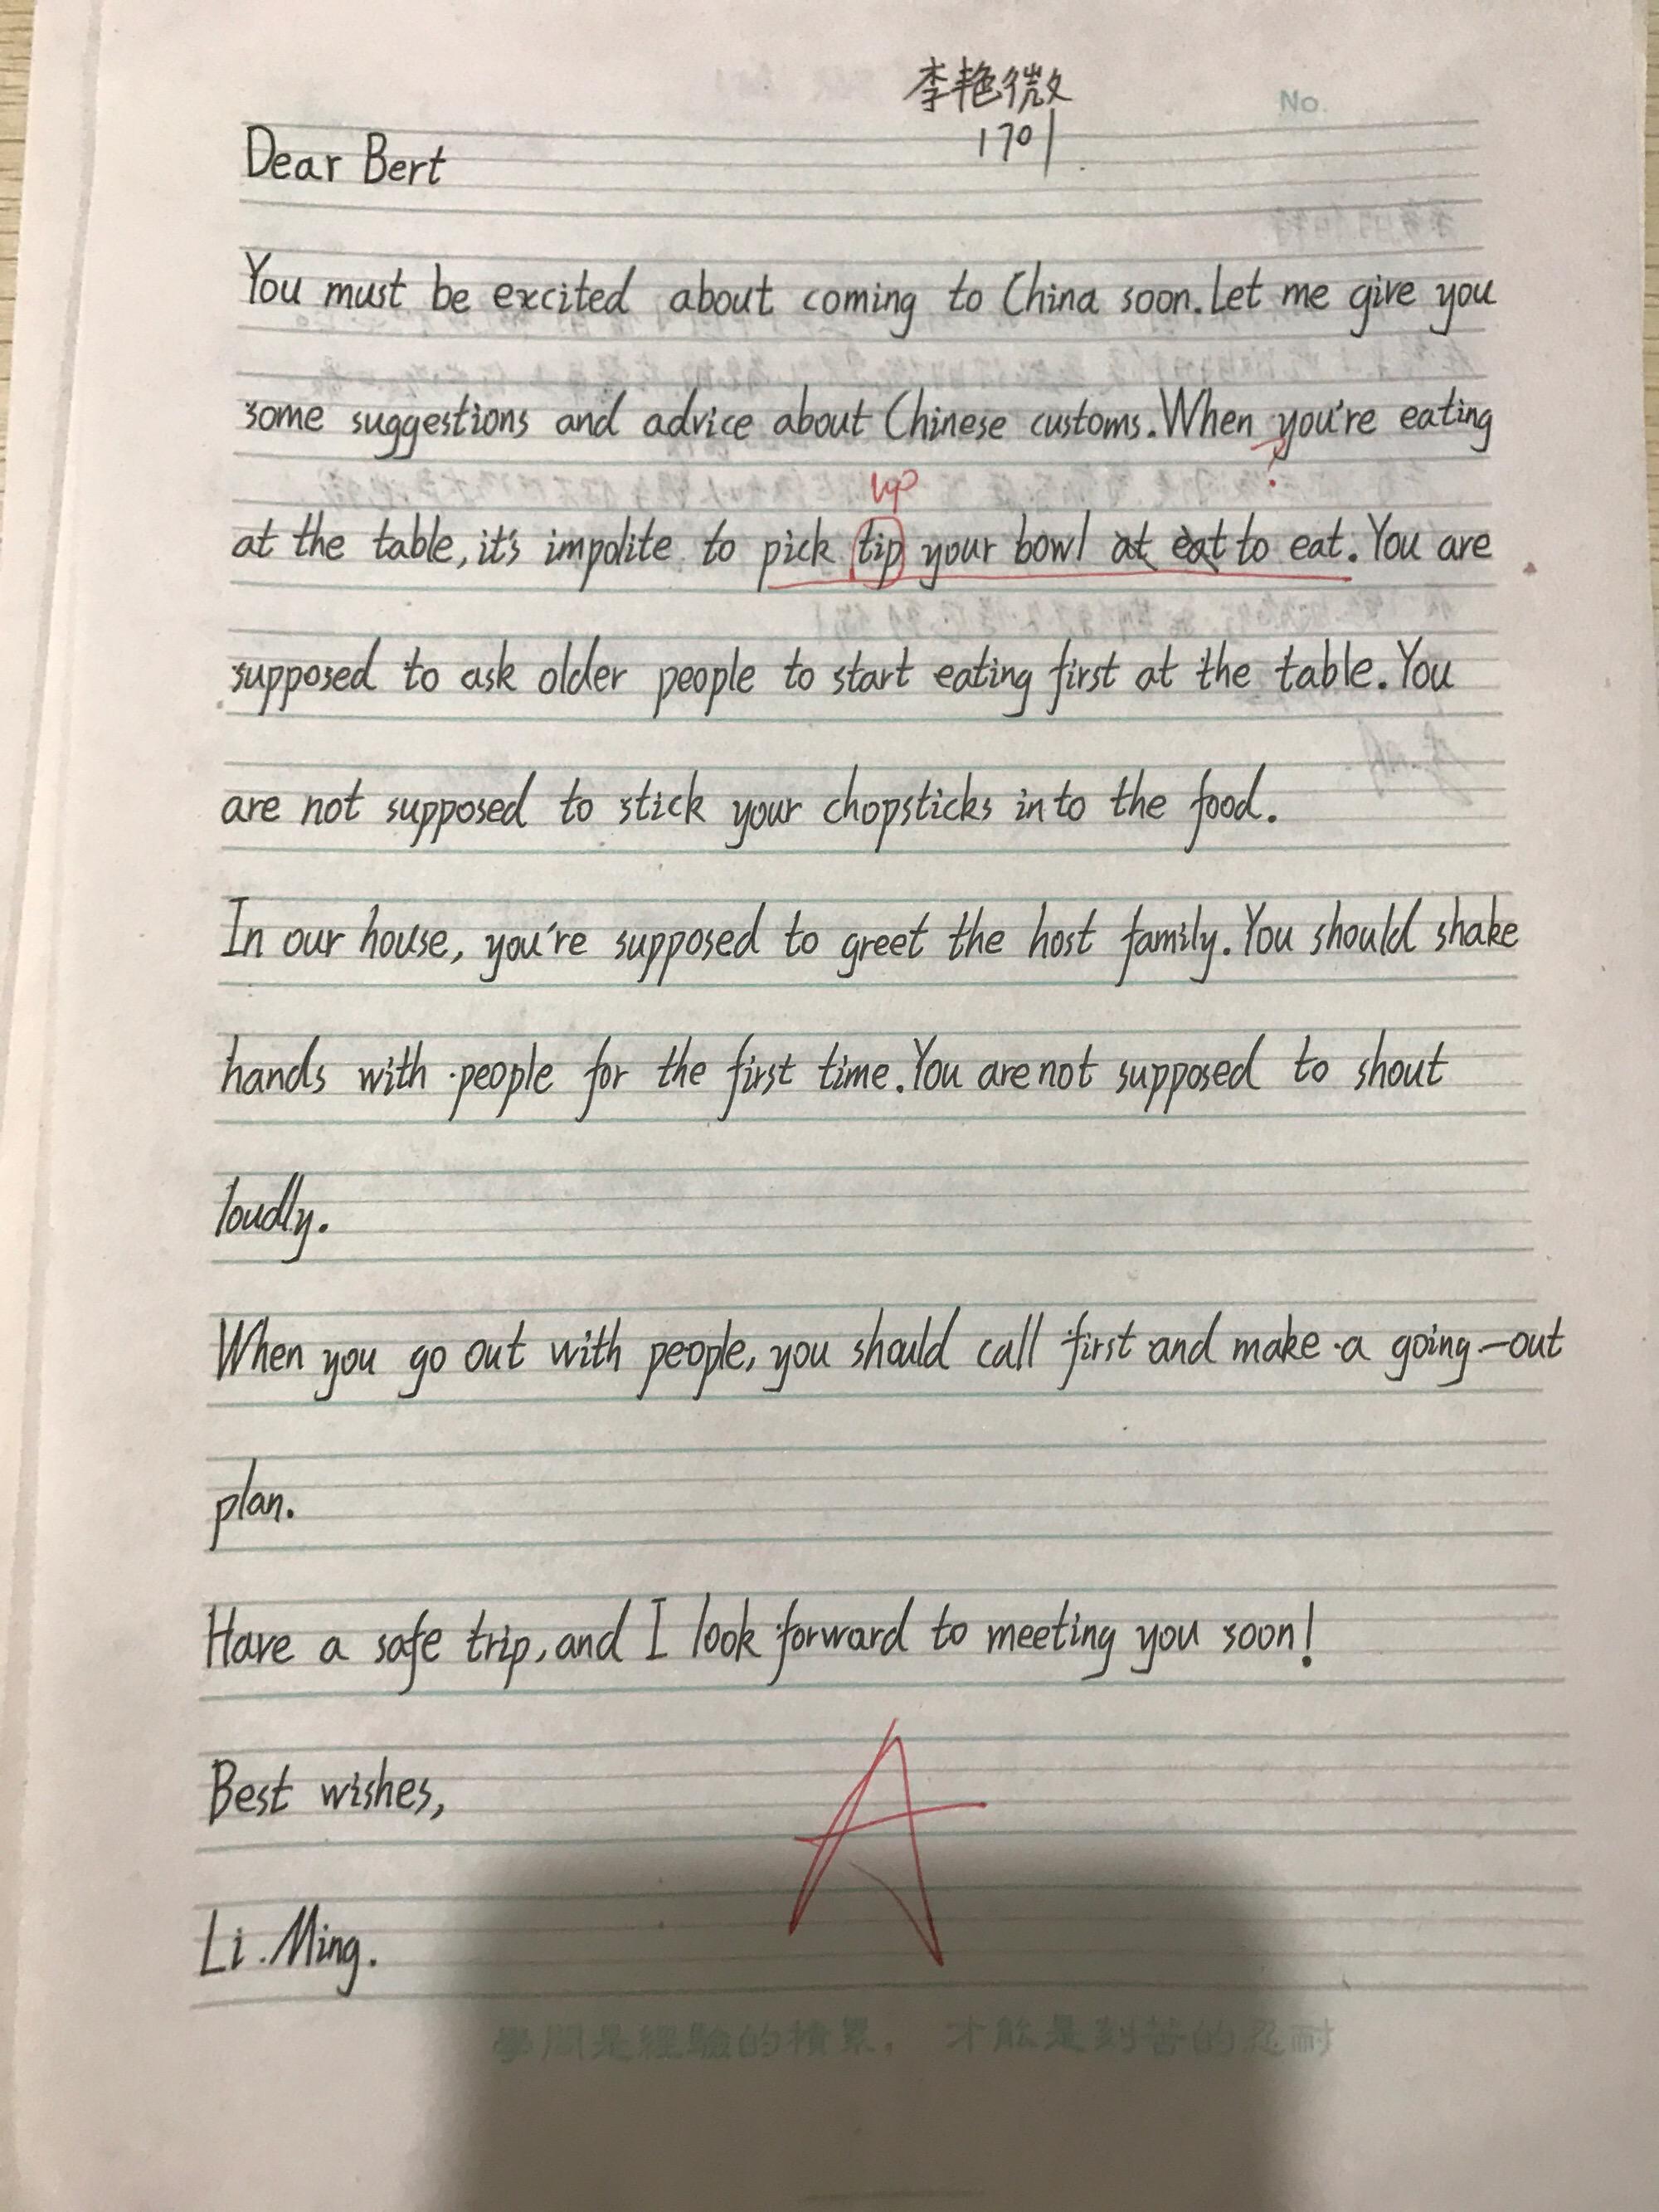 李艳微
No.
1701
Dear Bert
You must be excited about coming to China soon. Let me give you
some suggestions and advice about Chinese customs. When you're eating
?
up
at the table, it's impolite to pick tip your bowl at eat to eat. You are
supposed to ask older people to start eating first at the table. You
are not supposed to stick your chopsticks into the food.
In our house, you're supposed to greet the host family. You should shake
hands with people for the first time. You are not supposed to shout
loudly.
When you go out with people, you should call first and make a going-out
plan.
Have a safe trip, and I look forward to meeting you soon!
Best wishes,
A
Li Ming.
學問是經驗的積累， 才能是刻苦的忍耐